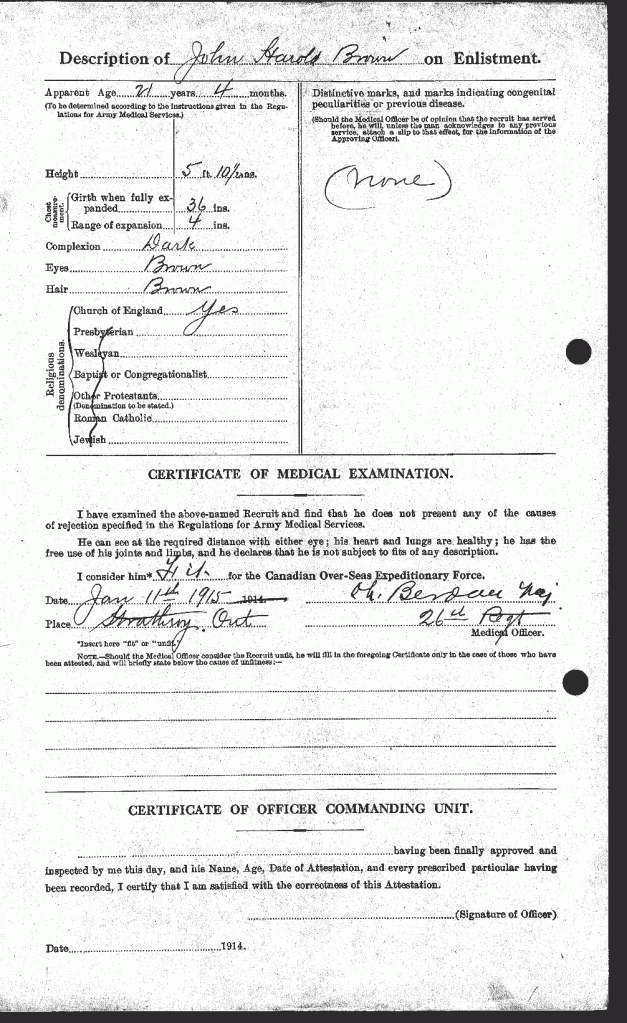 Description of John Harold Brown on Enlistment.
Apparent Age 21 years 4 months.
(To be determined according to the instructions given in the Regulations for Army Medical Services.)
Height 5 ft. 10½ ins.
Chest measurement.
Girth when fully expanded 36 ins.
Range of expansion 4 ins.
Complexion Dark
Eyes Brown
Hair Brown
Religious denominations.
Church of England Yes
Presbyterian
Wesleyan
Baptist or Congregationalist
Other Protestants
(Denomination to be stated.)
Roman Catholic
Jewish
Distinctive marks, and marks indicating congenital
peculiarities or previous disease.
(Should the Medical Officer be of opinion that the recruit has served
before, he will, unless the man acknowledges to any previous
service, attach a slip to that effect, for the information of the
Approving Officer).
(none)
CERTIFICATE OF MEDICAL EXAMINATION.
I have examined the above-named Recruit and find that he does not present any of the causes
of rejection specified in the Regulations for Army Medical Services.
He can see at the required distance with either eye; his heart and lungs are healthy; he has the
free use of his joints and limbs, and he declares that he is not subject to fits of any description.
I consider him* Fit for the Canadian Over-Seas Expeditionary Force.
Date Jan 11th 1915 1914. Maj
Place Strathroy. Ont 26th Regt
Medical Officer.
*Insert here "fit" or "unfit"
NOTE.—Should the Medical Officer consider the Recruit unfit, he will fill in the foregoing Certificate only in the case of those who have
been attested, and will briefly state below the cause of unfitness:—
CERTIFICATE OF OFFICER COMMANDING UNIT.
having been finally approved and
inspected by me this day, and his Name, Age, Date of Attestation, and every prescribed particular having
been recorded, I certify that I am satisfied with the correctness of this Attestation.
(Signature of Officer)
Date 1914.